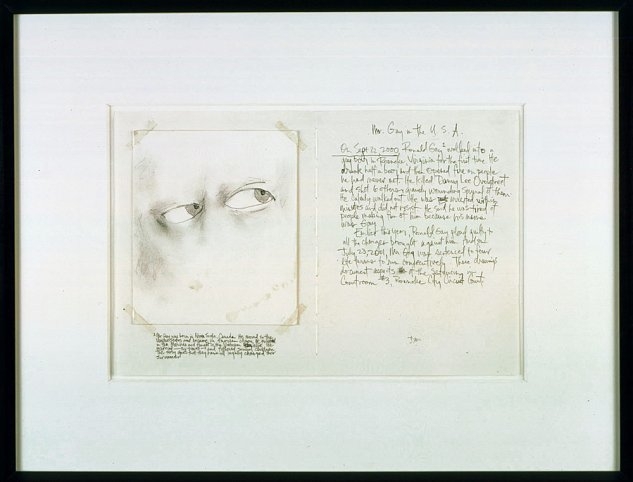 Mr. Gay in the U.S.A.
On Sept 22, 2000, Ronald Gay¹ walked into a
gay bar in Roanoke Virginia for the first time. He
drank half a beer and then opened fire on people
he had never met. He killed Danny Lee Overstreet
and shot 6 others gravely wounding several of them.
He calmly walked out. He was arrested within
minutes and did not resist. He said he was tired of
people making fun of him because his name
was Gay.
Earlier this year, Ronald Gay plead guilty to
all the charges brought against him. And on
July 23, 2001, Mr. Gay was sentenced to four
life terms to run consecutively. These drawings
document aspects of the Sentencing in
Courtroom #3, Roanoke City Circuit Court.
¹ Mr. Gay was born in Canada. He moved to the
United States and became an American citizen. He
in the Marines and fought in the Vietnam
children
they have all legally changed their
surnames.